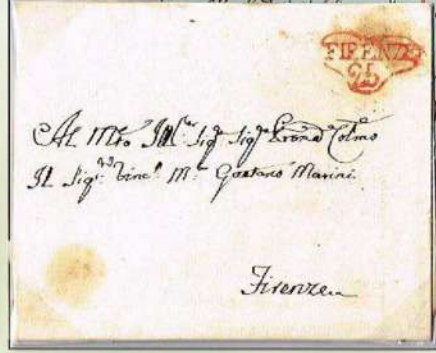 FIRENZE
Al M.to Ill.re Sig.r Sig.r Pron.e Col.mo
Il Sig.r Vinc.o M.a Gaetano Marini
Firenze